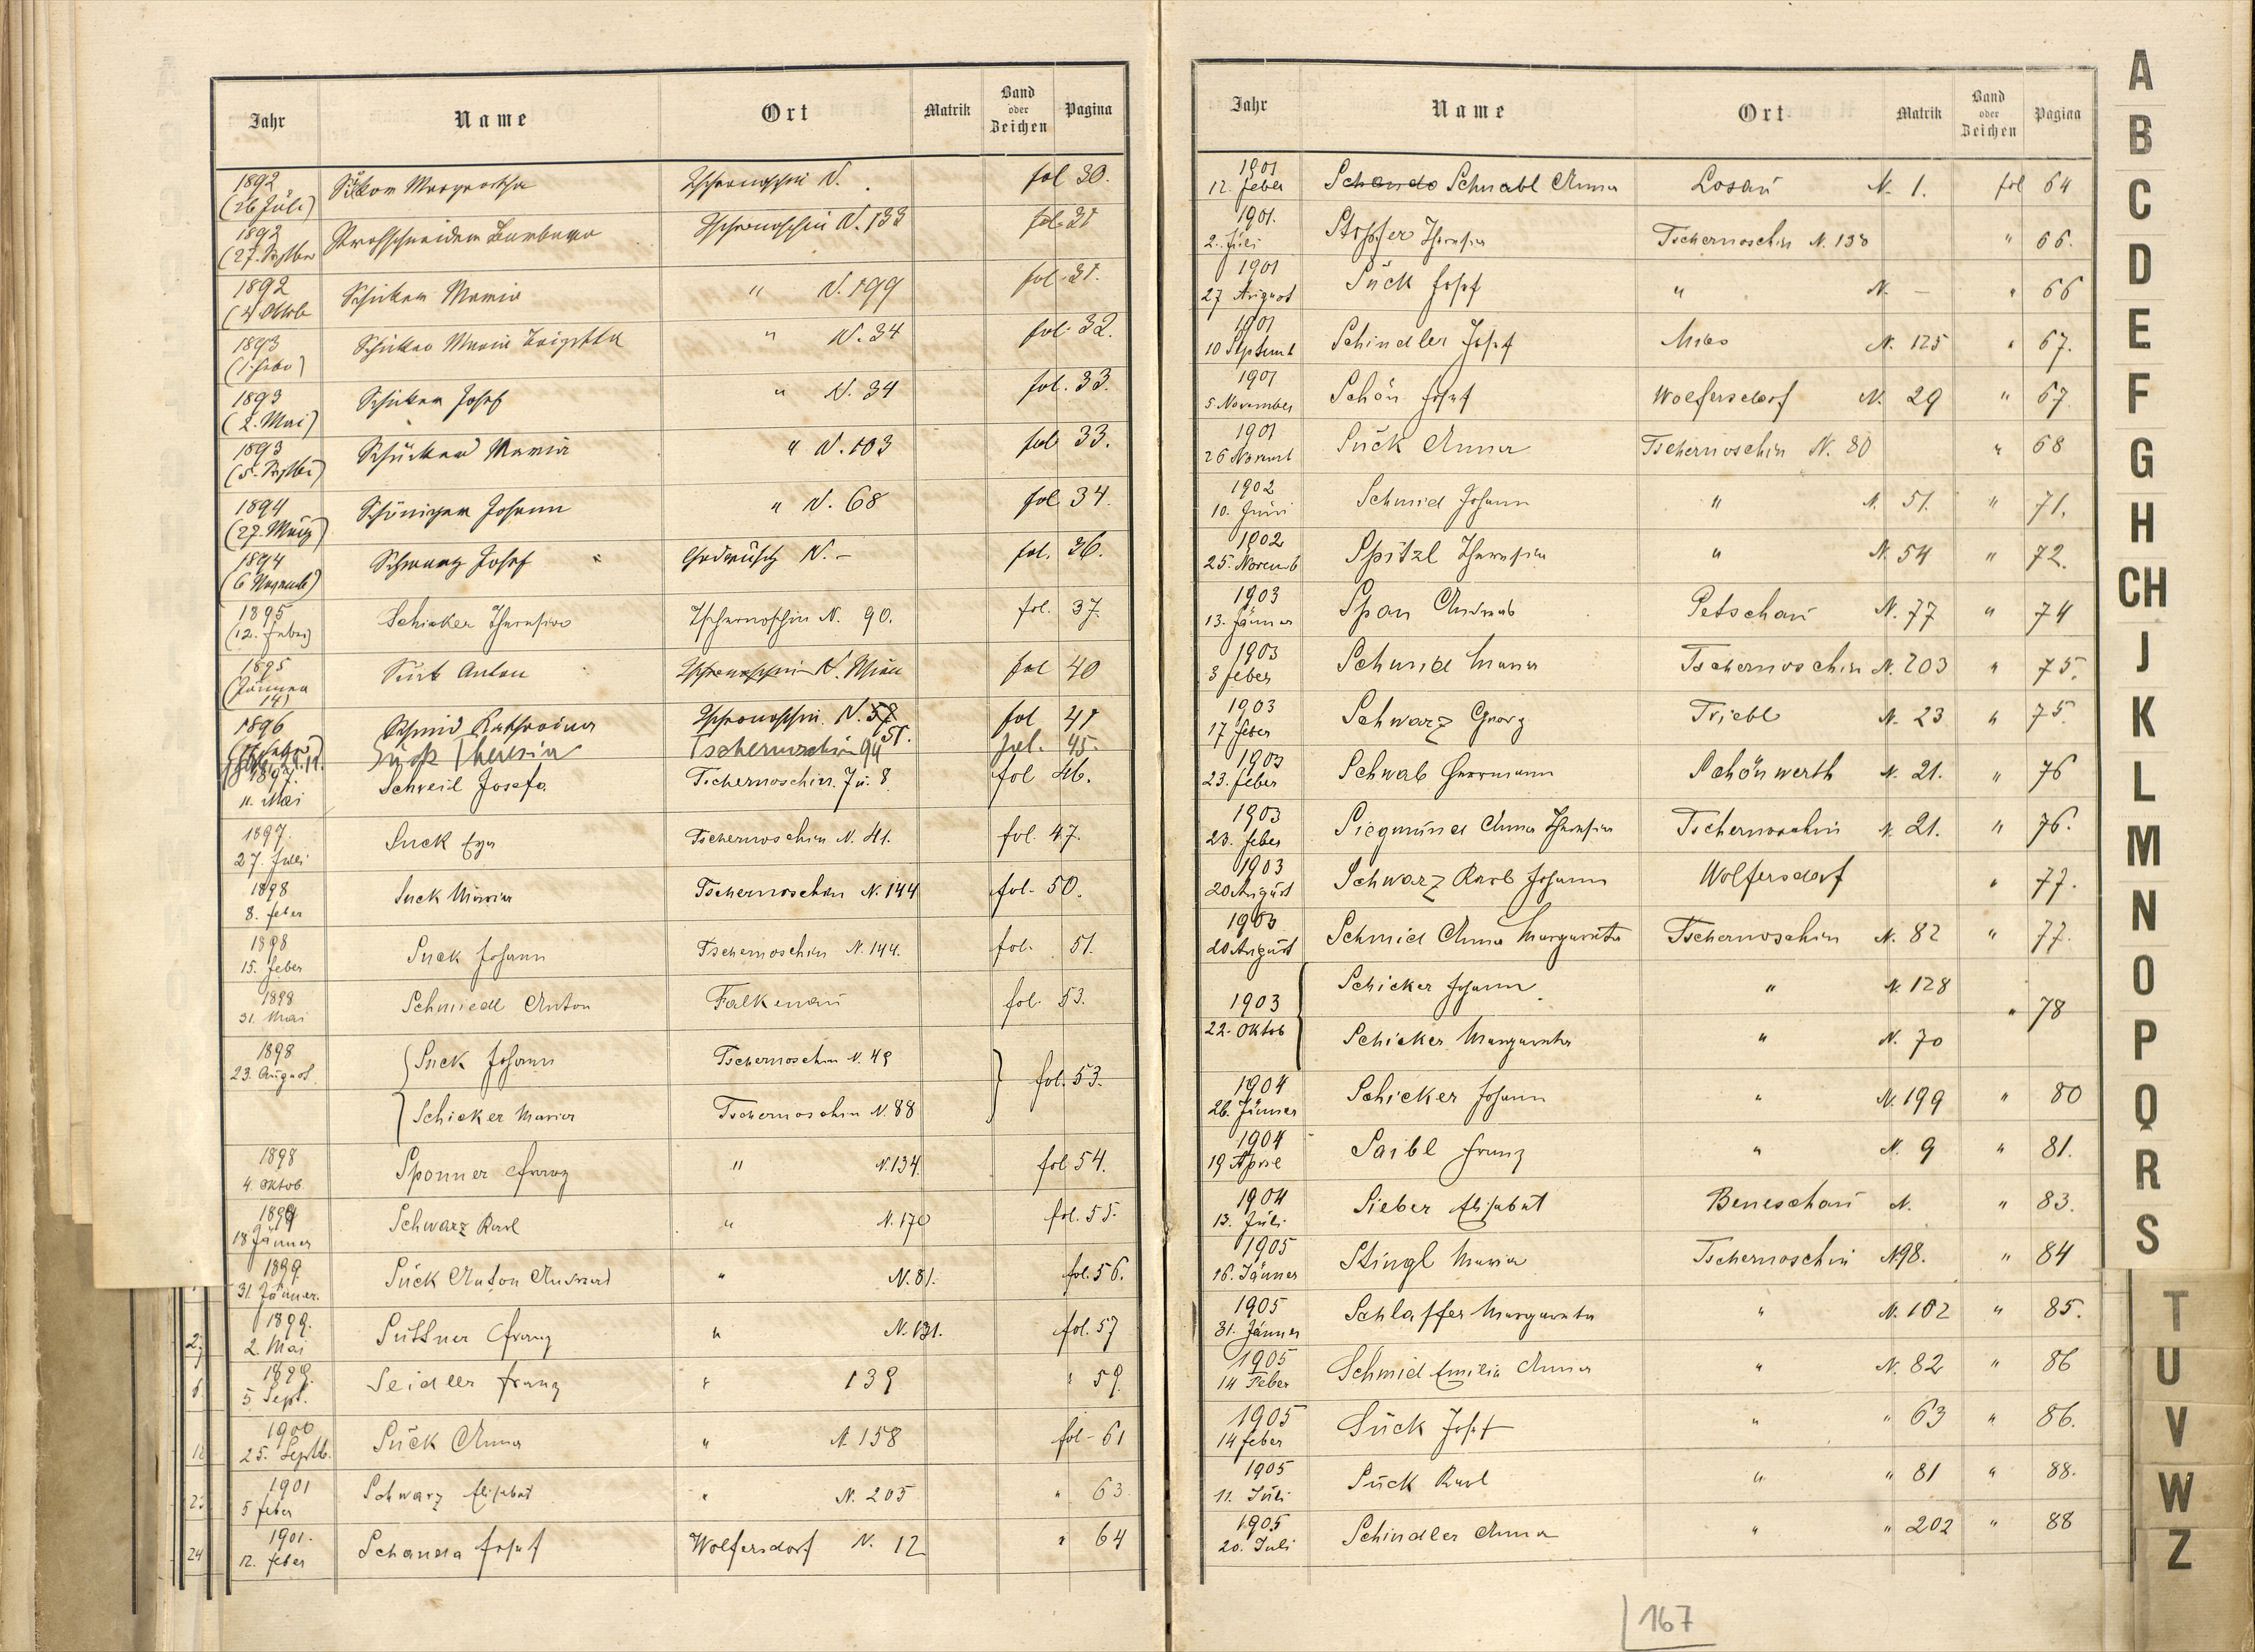 Jahr Name Ort Matrik Band oder Zeichen Pagina
1892 (26 Juli) Margaretha Tschernoschin N. fol 30.
1892 (27. Septber Strohschneider Barbara Tschernoschin N. 133 fol. 31
1892 (4 Oktob Schicker Maria " N. 199 fol. 31.
1893 (1. Febr) Schicker Maria Brigitta " N. 34 fol. 32.
1893 (2. Mai) Schicker Josef " N. 34 fol. 33.
1893 (5. Septbr) Schicker Maria " N. 103 fol 33.
1894 (27. März) Johann " N. 68 fol 34.
1894 (6 Novemb) Schwarz Josef N. – fol. 36.
1895 (12. Feber) Schicker Theresia Tschernoschin N. 90. fol. 37.
1895 (Jänner 14) Anton Tschernoschin N. fol 40
1896 Schmid Katharina Tschernoschin. N. 57 51. fol 41
Süß Theresia Tschernoschin 94 fol. 45.
1897. 11. Mai Schreil Josefa Tschernoschin. 7 u. 8. fol 46.
1897. 27. Juli Suck Eva Tschernoschin N. 41. fol. 47.
1898 8. feber Suck Maria Tschernoschin N. 144 fol. 50.
1898 15. feber Suck Johann Tschernoschin N. 144. fol. 51.
1898 31. Mai Schmiedl Anton Falkenau fol. 53.
1898 23. August. Suck Johann Tschernoschin N. 49 fol. 53.
Schicker Maria Tschernoschin N. 88
1898 4. Oktob. Sponner Franz " N. 134 fol 54.
1899 18 Jänner Schwarz Karl " N. 170 fol. 55.
1899 31. Jänner. Suck Anton Andreas " N. 81. fol. 56.
1899. 2. Mai Suttner Franz " N. 131. fol. 57
1899. 5 Sept. Seidler Franz " 139 " 59
1900 25. Septb. Suck Anna " N. 158 fol – 61
1901 5 feber Schwarz Elisabet " N. 205 " 63
1901. 12. feber Schanda Josef Wolfersdorf N. 12 " 64
Jahr Name Ort Matrik Band oder Zeichen Pagina
1901 12. feber Schando Schnabl Anna Losau N. 1. fol 64
1901. 2. Juli Stopfer Theresia Tschernoschin N. 138 " 66.
1901 27 August Suck Josef " N. – " 66
1901 10 Septemb Schindler Josef Mies N. 125 " 67.
1901 5. November Schön Josef Wolfersdorf N. 29 " 67
1901 26 Novemb Suck Anna Tschernoschin N. 80 " 68
1902 10. Juni Schmid Johann " N. 51. " 71.
1902 25. Novemb Spitzl Theresia " N. 54 " 72.
1903 13. Jänner Span Andreas Petschau N. 77 " 74
1903 3 feber Schmid Maria Tschernoschin N. 203 " 75.
1903 17 feber Schwarz Georg Triebl N. 23 " 75.
1903 23. feber Schwab Herrmann Schönwerth N. 21. " 76
1903 23. feber Siegmund Anna Theresia Tschernoschin N. 21. " 76.
1903 20 August Schwarz Karl Johann Wolfersdorf " 77.
1903 20 August Schmid Anna Margareta Tschernoschin N. 82 " 77.
1903 22. Oktob Schicker Johann " N. 128 " 78
Schicker Margareta " N. 70
1904 26. Jänner Schicker Johann " N. 199 " 80
1904 19 April Saibl Franz " N. 9 " 81.
1904 13. Juli Sieber Elisabet Beneschau N. " 83.
1905 16. Jänner Stingl Maria Tschernoschin N 98. " 84
1905 31. Jänner Schlaffer Margareta " N. 102 " 85.
1905 14 Feber Schmid Emilia Anna " N. 82 " 86
1905 14 feber Suck Josef " " 63 " 86.
1905 11. Juli Suck Karl " " 81 " 88.
1905 20. Juli Schindler Anna " " 202 " 88
167
A
B
C
D
E
F
G
H
CH
J
K
L
M
N
O
P
Q
R
S
T
U
V
W
Z